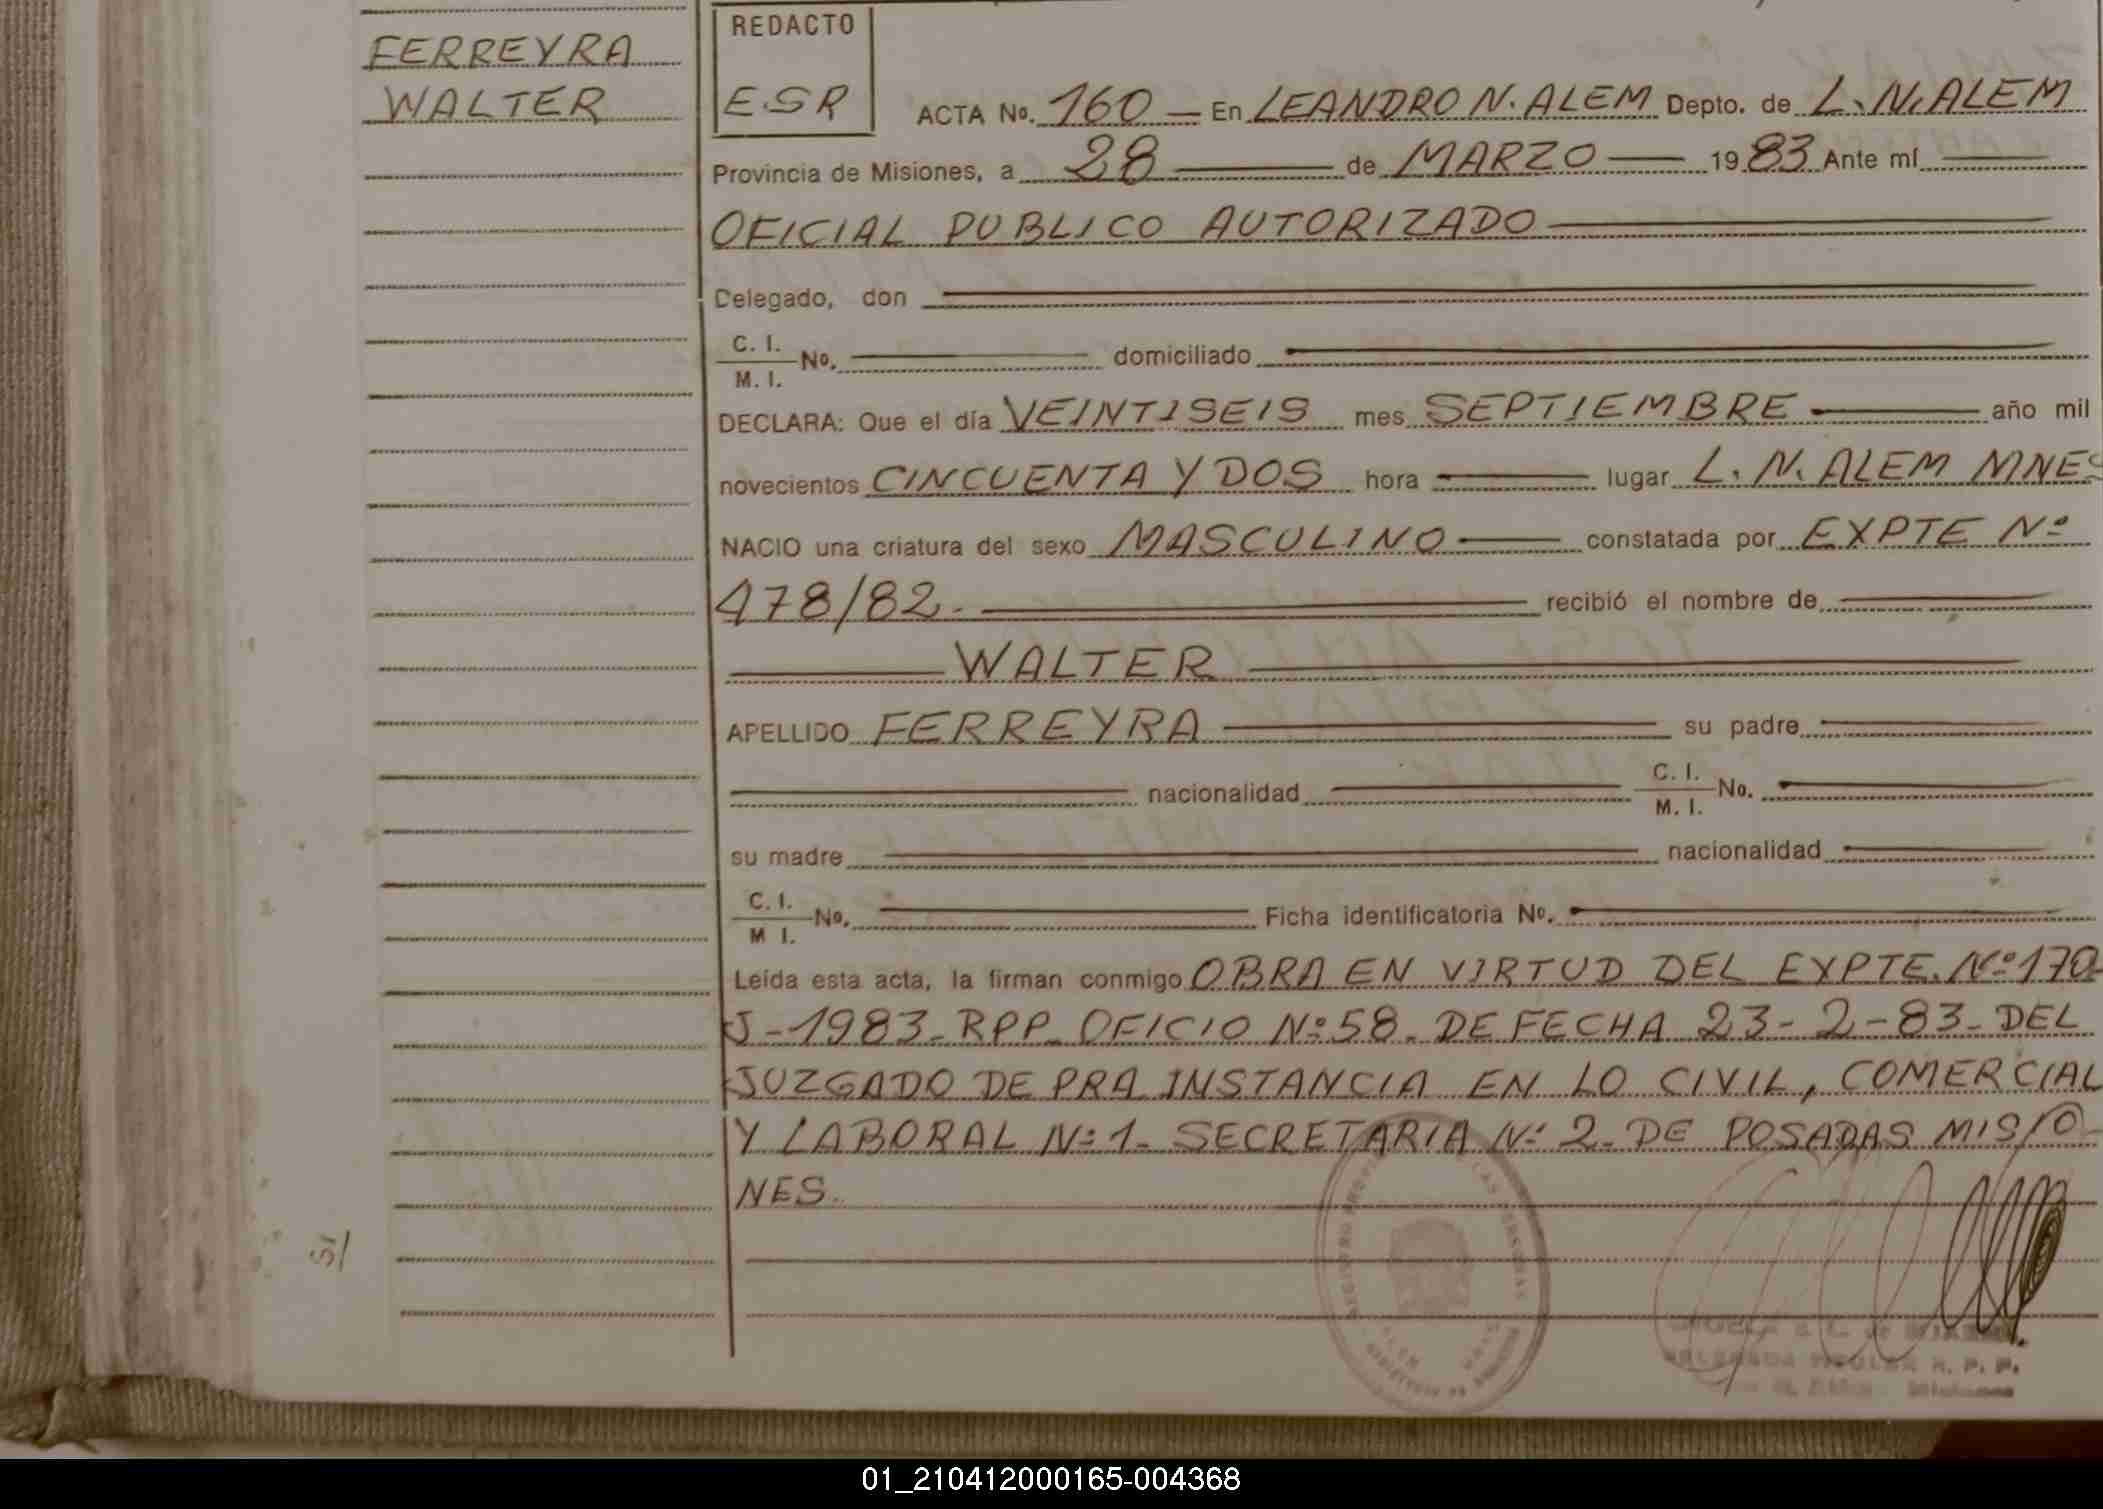 FERREYRA
WALTER
REDACTO
E.S R
ACTA No. 160 — En LEANDRO N. ALEM Depto. de L. N. ALEM
Provincia de Misiones, a 28 de MARZO 1983 Ante mí
OFICIAL PUBLICO AUTORIZADO
Delegado, don
C. I.
M. I. No. domiciliado
DECLARA: Que el día VEINTISEIS mes SEPTIEMBRE año mil
novecientos CINCUENTA Y DOS hora lugar L. N. ALEM MNES
NACIO una criatura del sexo MASCULINO constatada por EXPTE Nº
478/82. recibió el nombre de
WALTER
APELLIDO FERREYRA su padre
nacionalidad C. I. M. I. No.
su madre nacionalidad
C. I. M I. No. Ficha identificatoria No.
Leída esta acta, la firman conmigo OBRA EN VIRTUD DEL EXPTE. Nº 170-
J-1983-RPP- OFICIO Nº 58. DE FECHA 23-2-83- DEL
JUZGADO DE PRA INSTANCIA EN LO CIVIL, COMERCIAL
Y LABORAL Nº 1- SECRETARIA Nº 2- DE POSADAS MISIO-
NES.
R. P. P.
01_210412000165-004368